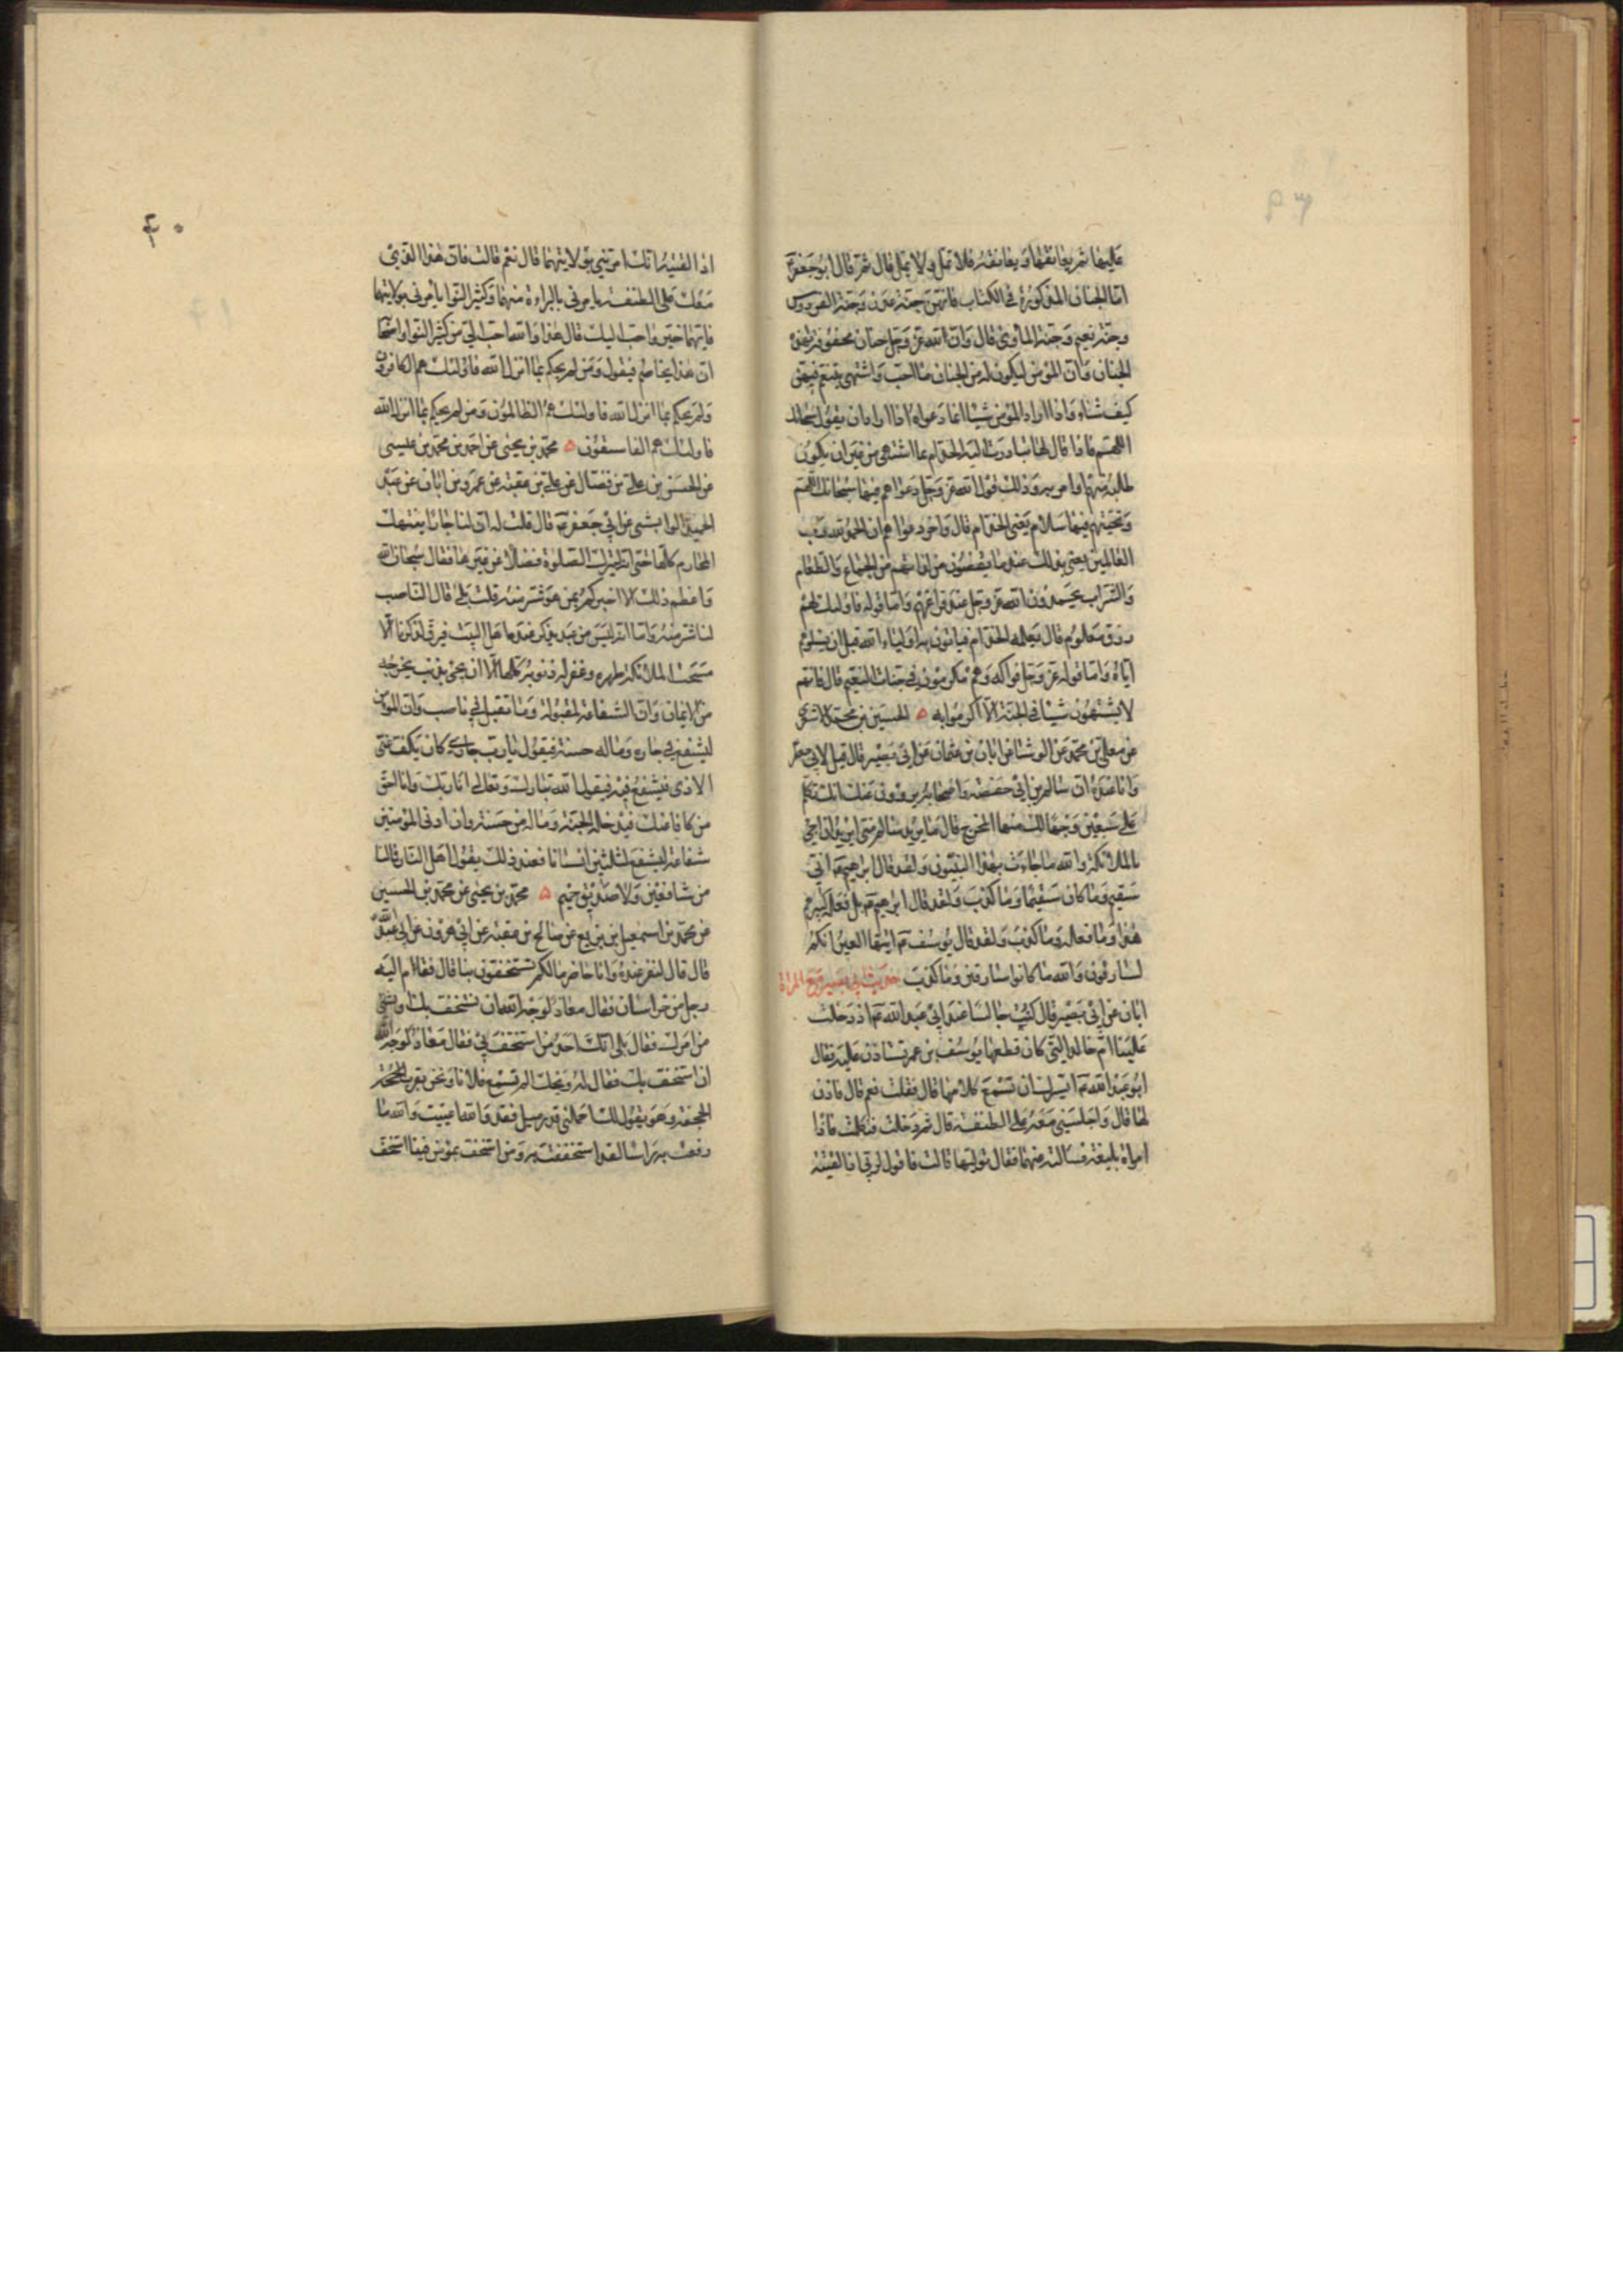 عليها ثم يعانقها ويعانقه فلا تمل ولا يمل قال ثم قال ابو جعفر ع
اما الجنان المذكورة في الكتاب فانهن جنة عدن وجنة الفردوس
وجنة نعيم وجنة المأوى قال وان لله عز وجل جنان محفوفة بهذه
الجنان وان المؤمن ليكون له من الجنان ما احب واشتهى يتنعم فيهن
كيف شاء واذا اراد المؤمن شيئا انما دعواه اذا اراد ان يقول سبحانك
اللهم فاذا قال لها تبادرت اليه الخدام بما اشتهى من غير ان يكون
طلبه منهم او امر به وذلك قول الله عز وجل دعواهم فيها سبحانك اللهم
وتحيتهم فيها سلام يعني الخدام قال واخر دعواهم ان الحمد لله رب
العالمين يعني بذلك عند ما يقضون من لذاتهم من الجماع والطعام
والشراب يحمدون الله عز وجل عند فراغهم واما قوله اولئك لهم
رزق معلوم قال يعلمه الخدام فياتون به اولياء الله قبل ان يسئلوهم
اياه واما قوله عز وجل فواكه وهم مكرمون في جنات النعيم قال فانهم
لا يشتهون شيئا في الجنة الا اكرموا به ه الحسين بن محمد الاشعري
عن معلى بن محمد عن الوشا عن ابان بن عثمان عن ابي بصير قال قيل لابي جعفر
وانا عنده ان سالم بن ابي حفصة واصحابه يروون عنك انك تكلم
على سبعين وجها لك منها المخرج قال ما يريد سالم مني ايريد ان اجئ
بالملائكة والله ما جاءت بهذا النبيون ولقد قال ابرهيم ع اني
سقيم وما كان سقيما وما كذب ولقد قال ابرهيم ع بل فعله كبيرهم
هذا وما فعله وما كذب ولقد قال يوسف ع ايتها العير انكم
لسارقون والله ما كانوا سارقين وما كذب حديث ابي بصير مع المراة
ابان عن ابي بصير قال كنت جالسا عند ابي عبد الله ع اذ دخلت
علينا ام خالد التي كان قطعها يوسف بن عمر تستاذن عليه فقال
ابو عبد الله ع ايسرك ان تسمع كلامها قال فقلت نعم قال فاذن
لها قال واجلسني معه على الطنفسة قال ثم دخلت فتكلمت فاذا
امراة بليغة فسالته عنهما فقال توليهما قالت فاقول لربي اذا لقيته
٤٠
اذا لقيته انك امرتني بولايتهما قال نعم قالت فان هذا الذي
معك على الطنفسة يامرني بالبراءة منهما وكثير النوا يأمرني بولايتهما
فايهما خير واحب اليك قال هذا والله احب الي من كثير النوا واصحابه
ان هذا يخاصم فيقول ومن لم يحكم بما انزل الله فاولئك هم الكافرون
ومن لم يحكم بما انزل الله فاولئك هم الظالمون ومن لم يحكم بما انزل الله
فاولئك هم الفاسقون ه محمد بن يحيى عن احمد بن محمد بن عيسى
عن الحسن بن علي بن فضال عن علي بن عقبة عن عمرو بن ابان عن عبد
الحميد الوابشي عن ابي جعفر ع قال قلت له ان لنا جارا ينتهك
المحارم كلها حتى انه ليترك الصلوة فضلا عن غيرها فقال سبحان الله
واعظم ذلك الا اخبركم بمن هو شر منه قلت بلى قال الناصب
لنا شر منه واما انه ليس من عبد يذكر عنده اهل البيت فيرق لذكرنا الا
مسحت الملائكة ظهره وغفر له ذنوبه كلها الا ان يجئ بذنب يخرجه
من الايمان وان الشفاعة لمقبولة وما تقبل في ناصب وان المؤمن
ليشفع في جاره وماله حسنة فيقول يا رب جاري كان يكف عني
الاذى فيشفع فيه فيقول الله تبارك وتعالى انا ربك وانا احق
من كافا عنك فيدخله الجنة وماله من حسنة وان ادنى المؤمنين
شفاعة ليشفع لثلثين انسانا فعند ذلك يقول اهل النار فما لنا
من شافعين ولا صديق حميم ه محمد بن يحيى عن محمد بن الحسين
عن محمد بن اسمعيل بن بزيع عن صالح بن عقبة عن ابي هرون عن ابي عبد الله
قال قال لنفر عنده وانا حاضر ما لكم تستخفون بنا قال فقام اليه
رجل من خراسان فقال معاذ لوجه الله ان نستخف بك او بشئ
من امرك فقال بلى انك احد من استخف بي فقال معاذ لوجه الله
ان استخف بك فقال له ويحك الم تسمع فلانا ونحن بقرب الجحفة
وهو يقول لك احملني قدر ميل فقد والله اعييت والله ما
رفعت به راسا لقد استخففت به ومن استخف بمؤمن فينا استخف